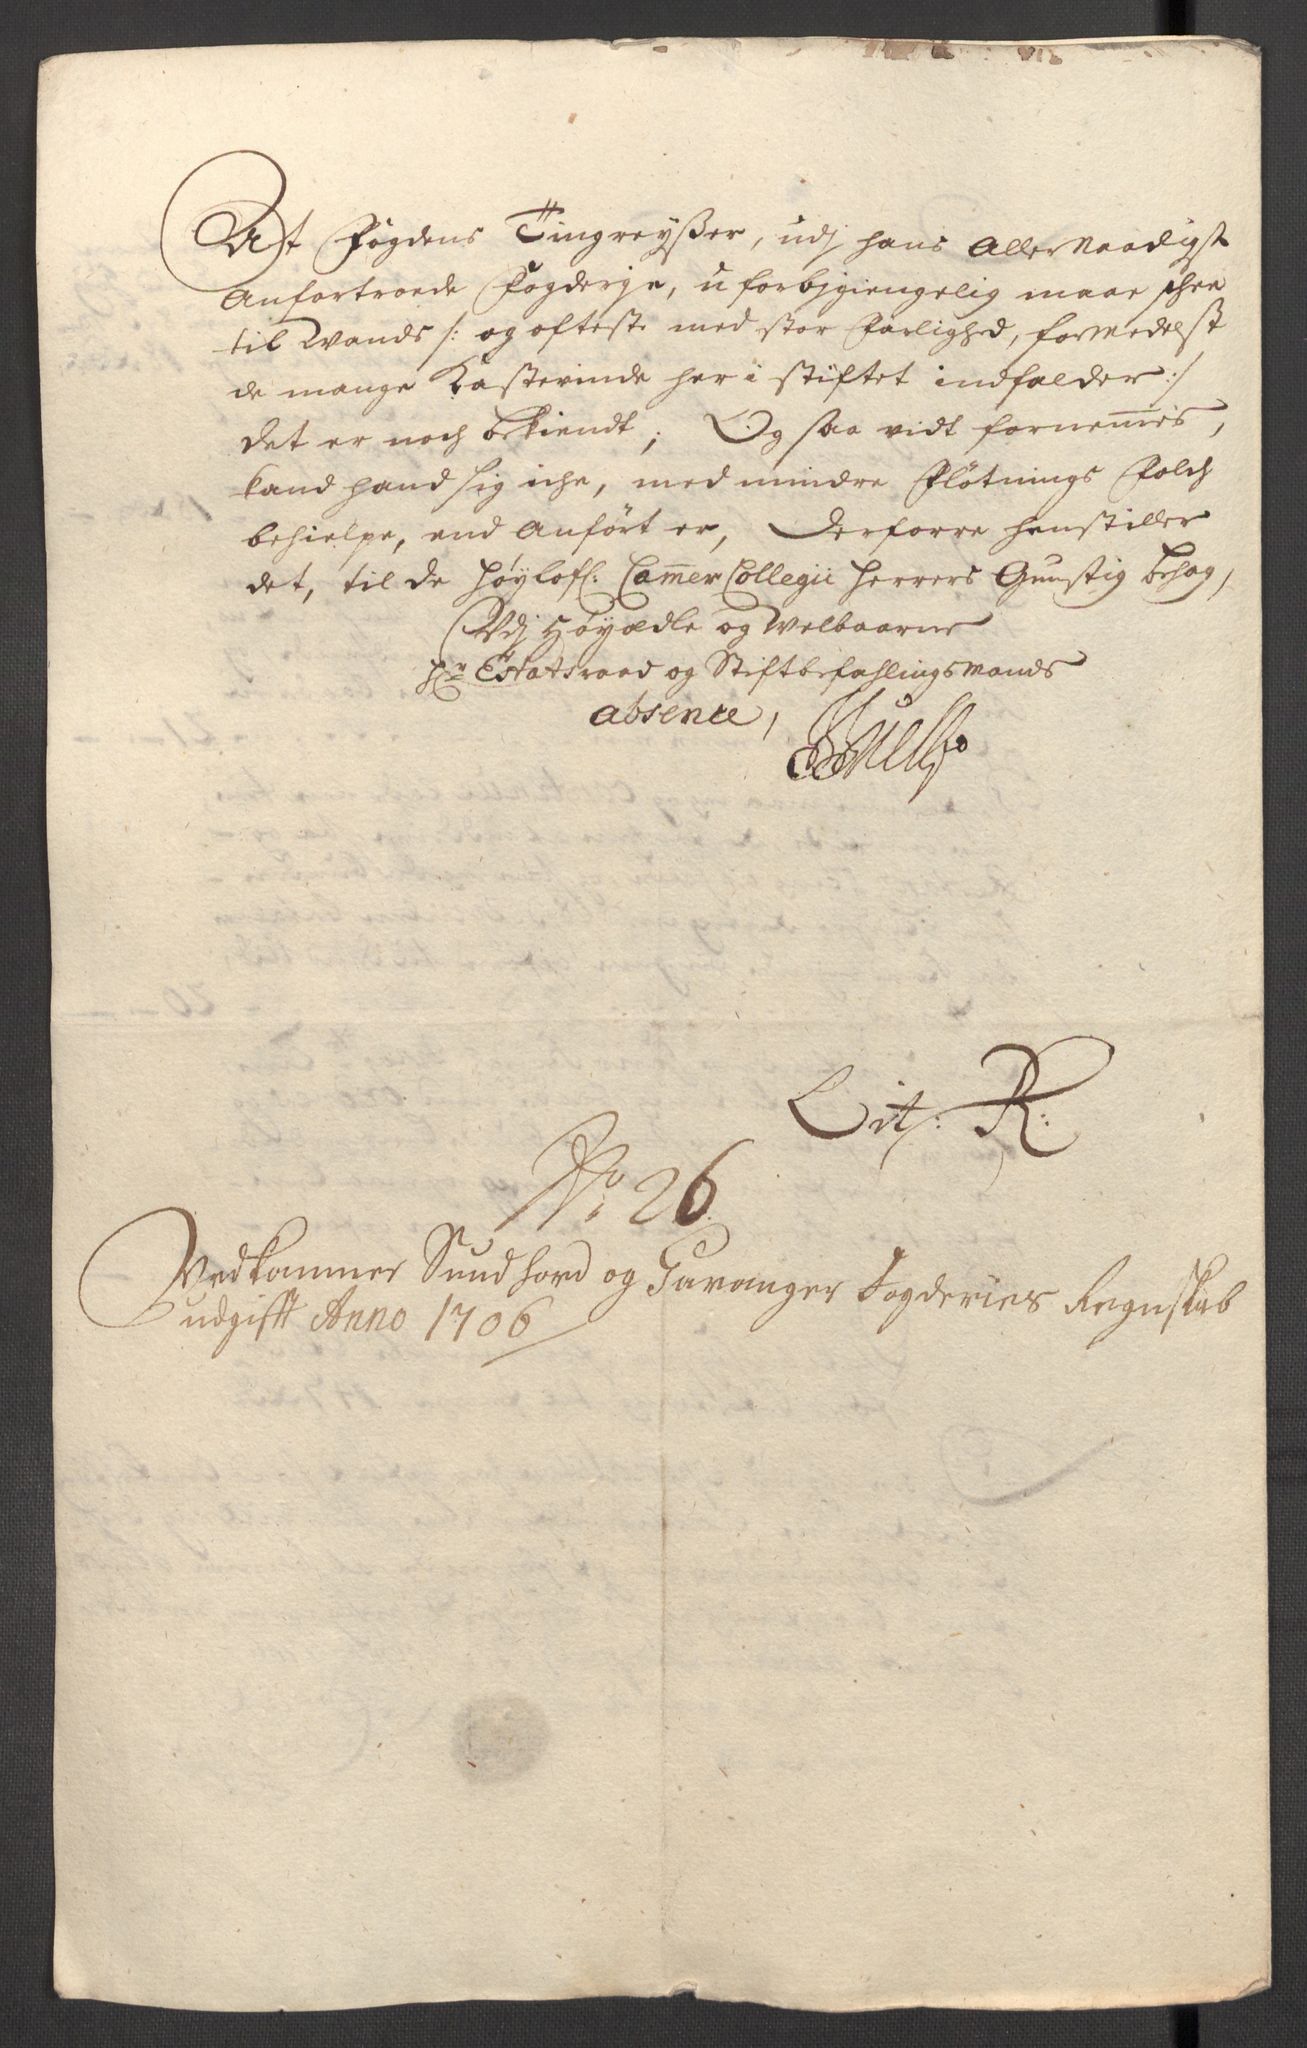 At Fogdens Tingreyßer, udj hans Allernaadigst
Anfortroede Fogderje, uforbjgiengelig maae schee
til Wands /: og ofteste med stor Farlighed, formedelst
de mange Kastevinde her i stiftet indfalder :/
det er noch bekiendt; Og saa vidt fornem̅es,
kand hand sig iche, med mindre Fløtnings Folch
behielpe, end Anført er, Derforre henstiller
det, til de høylofl: Cam̅er Collegii Herrers Gunstig behag,
Vdj Høyædle og Welbaarne
hr Etatsraad og Stiftbefahlingsmands
absence,
Lit: R:
No: 26.
Vedkommer Sundhord og Tavanger Fogderies Regnskab
udgifft Anno 1706